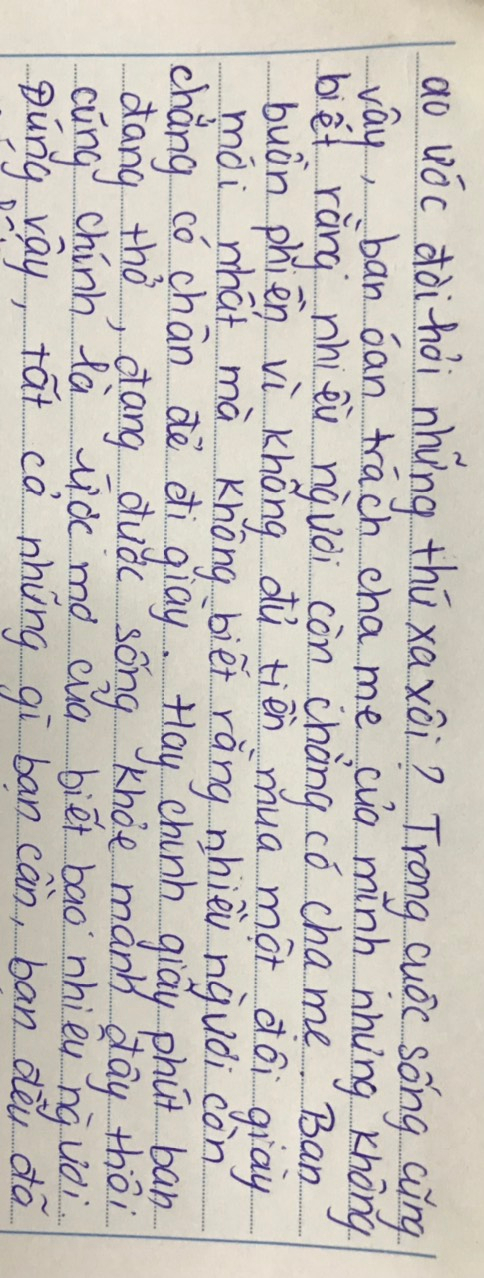 ao ước đòi hỏi những thứ xa xôi? Trong cuộc sống cũng
vậy, bạn oán trách cha mẹ của mình nhưng không
biết rằng nhiều người còn chẳng có cha mẹ. Bạn
buồn phiền vì không đủ tiền mua một đôi giày
mới nhất mà không biết rằng nhiều người còn
chẳng có chân để đi giày. Hay chính giây phút bạn
đang thở, đang được sống khỏe mạnh đây thôi
cũng chính là ước mơ của biết bao nhiêu người.
Đúng vậy, tất cả những gì bạn cần, bạn đều đã